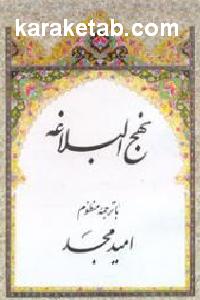 karaketab.com
نهج البلاغه
با ترجمه منظوم
امید مجد
karaketab.com